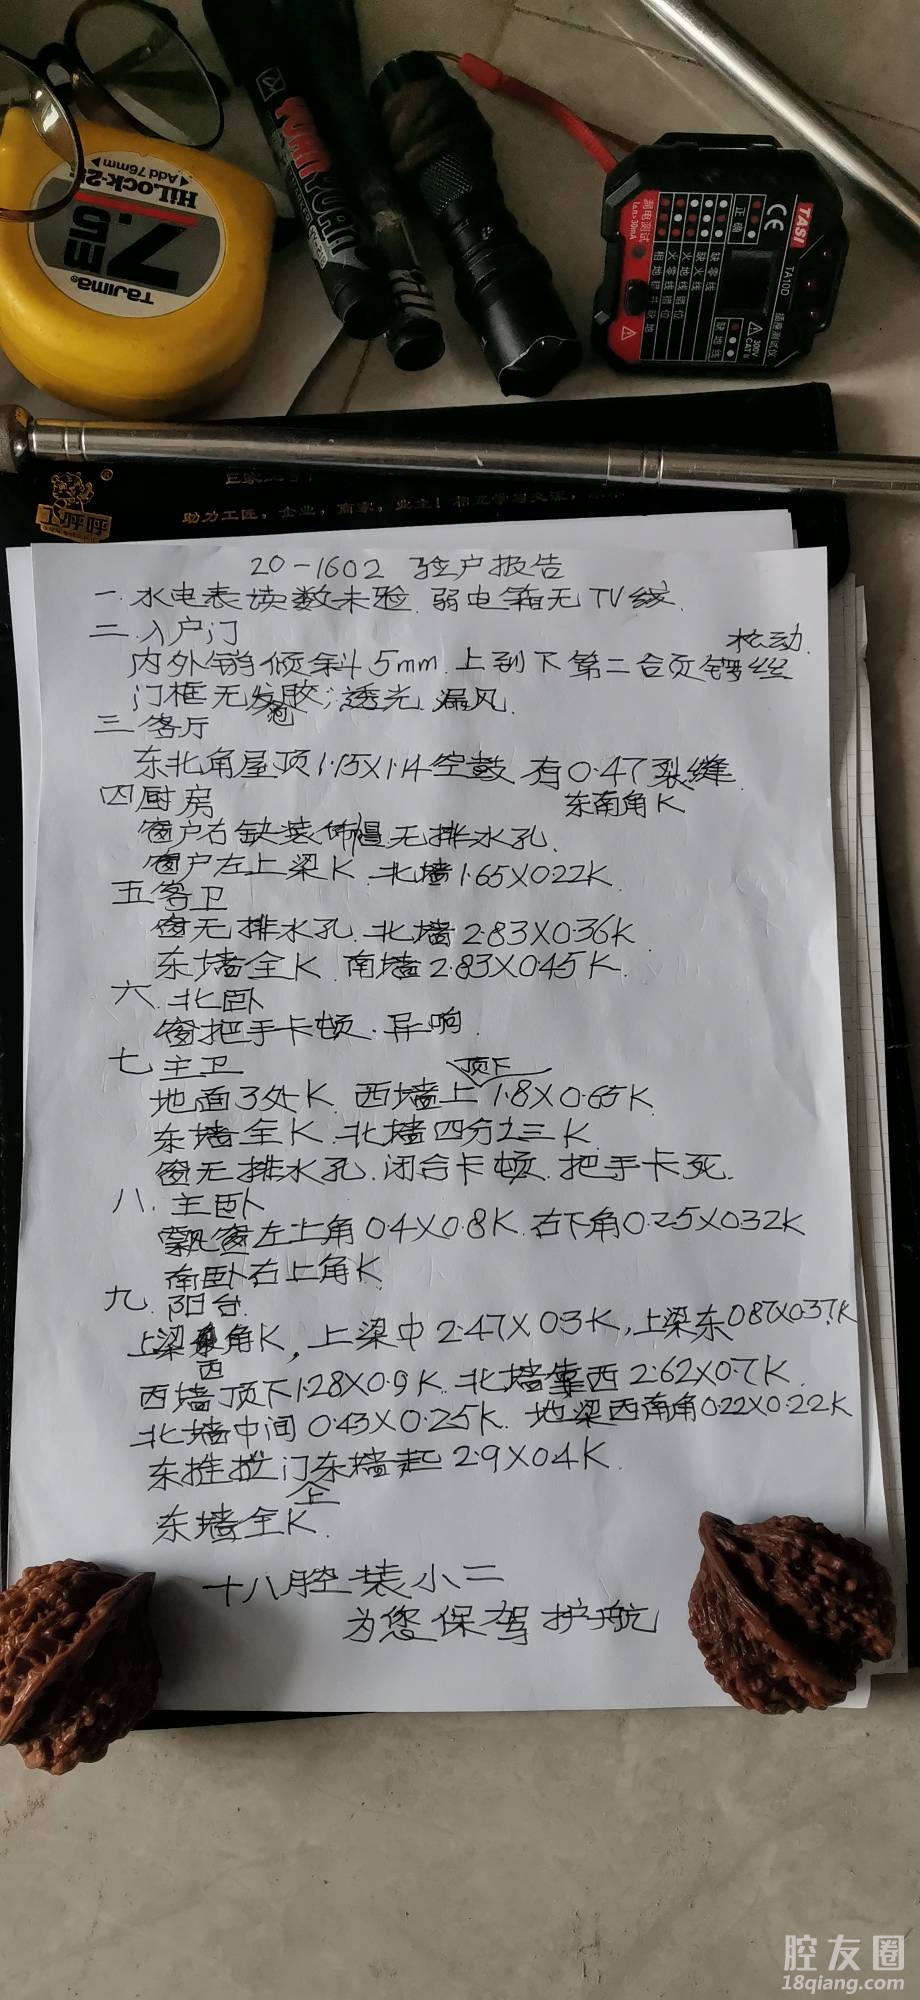 Add 76mm
HiLock-25
7.5m
Tajima
YUANYUAN
TASI
TA10D
插座测试仪
CE
300V
CAT II
正确
缺地线
缺零线
缺火线
火地线错位
火零线错位
相地错并缺地
漏电测试
I△n>30mA
助力工匠，企业，商家，业主！相互学习交流，
20-1602 验户报告
一 水电表读数未验.弱电箱无TV线.
二.入户门
松动.
内外销倾斜5mm.上到下第二合页镙丝
门框无发胶;透光.漏风.
泡
三.客厅
东北角屋顶1.15X1.14空鼓.有0.47裂缝
四厨房
东南角K
窗户右缺装饰帽.无排水孔.
窗户左上梁K.北墙1.65X0.22K.
五客卫
窗无排水孔.北墙2.83X0.36K
东墙全K.南墙2.83X0.45K.
六.北卧
窗把手卡顿.异响.
七主卫
顶下
地面3处K.西墙上1.8X0.65K.
东墙全K.北墙四分之三K.
窗无排水孔.闭合卡顿.把手卡死.
八.主卧
飘窗左上角0.4X0.8K.右下角0.25X0.32K
南卧右上角K.
九.阳台.
上梁角K，上梁中2.47X0.3K,上梁东0.87X0.37K
西
西墙顶下1.28X0.9K.北墙靠西2.62X0.7K.
北墙中间0.43X0.25K.地梁西南角0.22X0.22K
东推拉门东墙起2.9X0.4K.
上
东墙全K.
十八腔装小二
为您保驾护航
腔友圈
18qiang.com